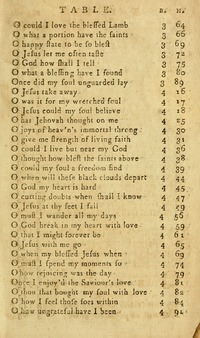 TABLE. B. H.
O could I love the blessed Lamb 3 64
O what a portion have the saints 3 66
O happy state to be blest 3 69
O Jesus let me often taste 3 72
O God how shall I tell 3 75
O what a blessing have I found 3 80
Once did my soul unguarded lay 3 89
O Jesus take away 4 16
O was it for my wretched soul 4 17
O Jesus could my soul believe 4 18
O has Jehovah thought on me 4 25
O joys of heav'n's immortal throng 4 30
O give me strength of living faith 4 31
O could I live but near my God 4 36
O thought how blest the saints above 4 38
O could my soul a freedom find 4 39
O when will these black clouds depart 4 44
O God my heart is hard 4 45
O cutting doubts when shall I know 4 47
O Jesus at thy feet I fall 4 49
O must I wander all my days 4 56
O God break in my heart with love 4 59
O that I might forever be 4 61
O Jesus with me go 4 65
O when my blessed Jesus when 4 69
O must I spend my moments so 4 74
O how rejoicing was the day 4 79
Once I enjoy'd the Saviour's love 4 81
O thou that bought my soul with love 4 82
O how I feel those foes within 4 84
O how ungrateful have I been 4 94